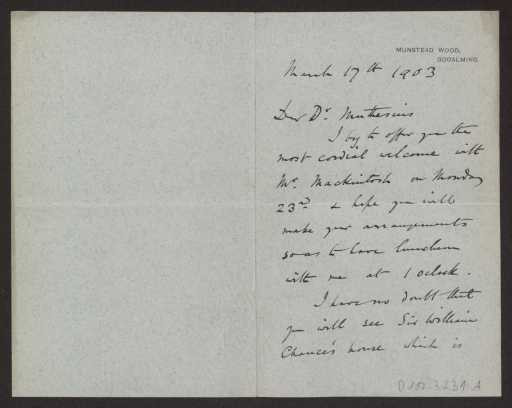 MUNSTEAD WOOD,
GODALMING.
March 17th 1903
Dear Dr. Muthesius
I beg to offer you the
most cordial welcome with
Mr. Mackintosh on Monday
23rd & hope you will
make your arrangements
so as to have luncheon
with me at 1 oclock.
I have no doubt that
you will see Sir William
Chance's house which is